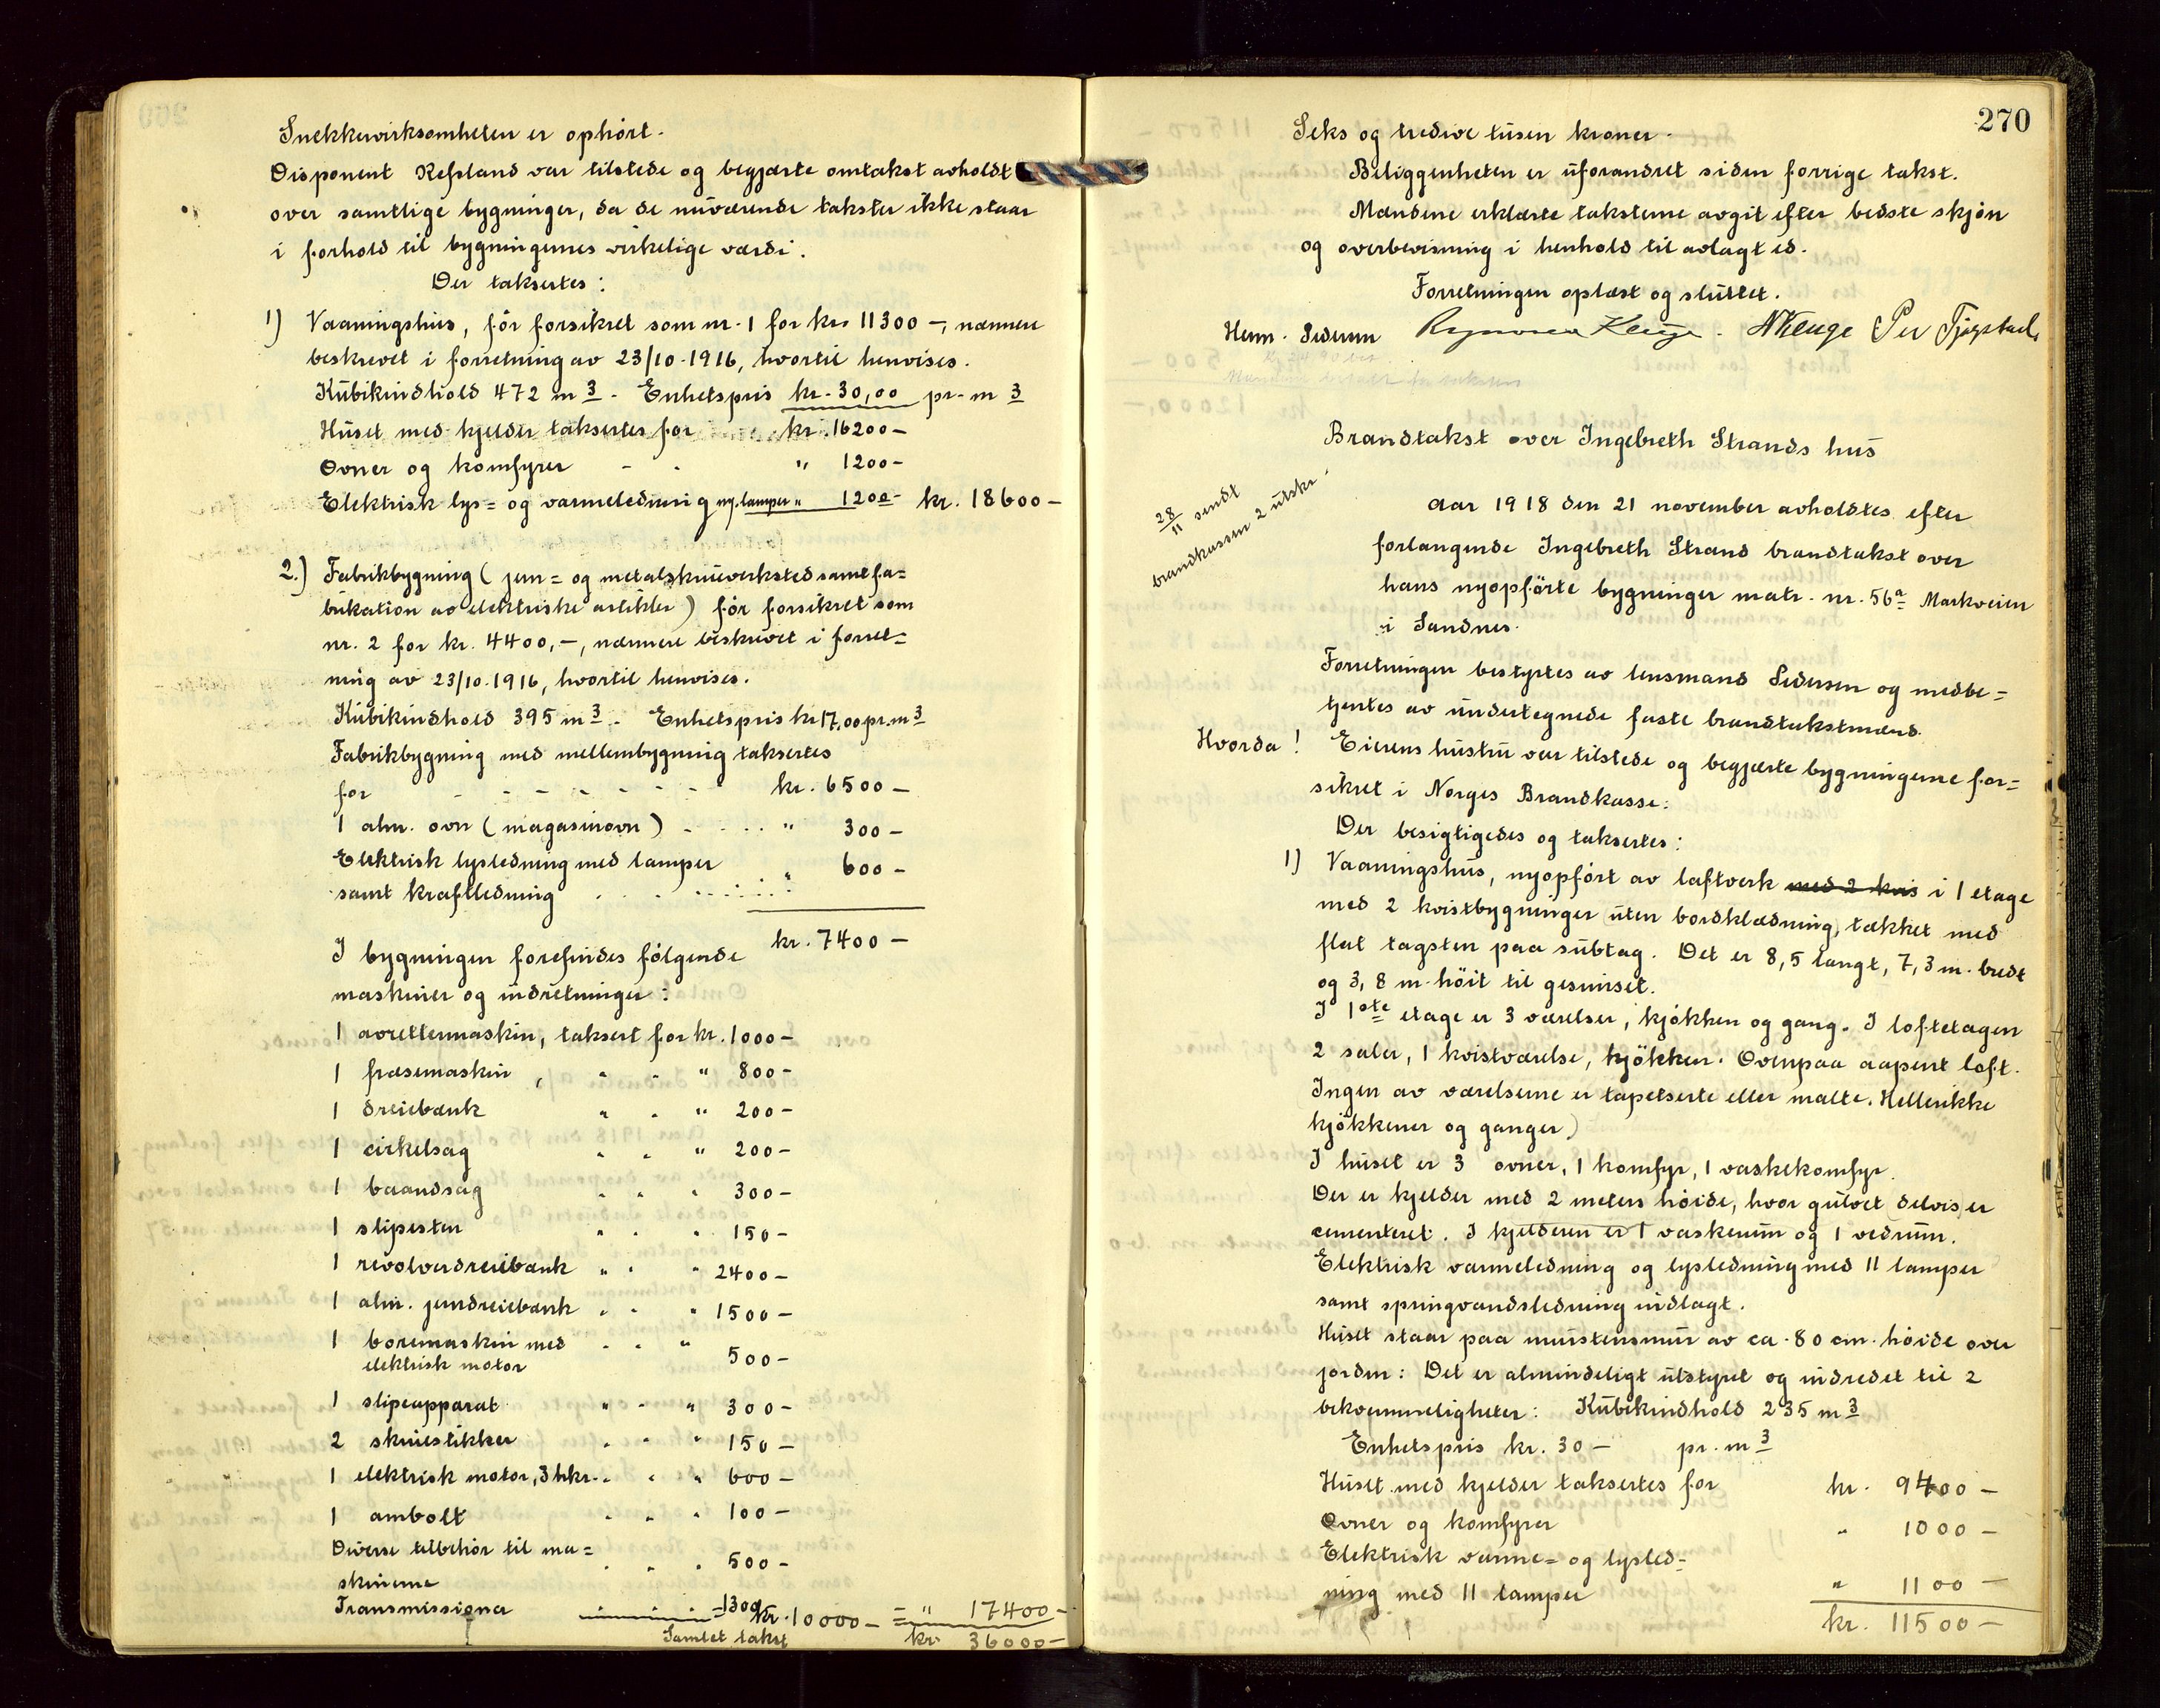 Snekkervirksomheten er ophørt.
Disponent Refsland var tilstede og begjærte omtakst avholdt
over samtlige bygninger, da de nuværende takster ikke staar
i forhold til bygningernes virkelige værdi.
Der taksertes:
1) Vaaningshus, før forsikret som nr. 1 for kr. 11300 -, nærmere
beskrevet i forretning av 23/10-1916, hvortil henvises.
Kubikindhold 472 m3 - Enhetspris kr. 30,00 pr. m3
Huset med kjelder taksertes for kr. 16200-
Ovner og komfyrer - - " 1200-
Elektrisk lys= og varmeledning og lamper " 1200- kr. 18600-
2.) Fabrikbygning (jern= og metalskrueverksted samt fa=
brikation av elektriske artikler) før forsikret som
nr. 2 for kr. 4400,-, nærmere beskrevet i forret=
ning av 23/10.1916, hvortil henvises.
Kubikindhold 395 m3 - Enhetspris kr 17,00 pr. m3
Fabrikbygning med mellembygning taksertes
for - - - - - - - kr. 6500-
1 alm. ovn (magasinovn) - . . . " 300-
Elektrisk lysledning med lamper
samt kraftledning . . . . . . " 600-
kr. 7400-
I bygningen forefindes følgende
maskiner og indretninger:
1 avrettermaskin, taksert for kr. 1000-
1 fræsemaskin, " " " 800-
1 dreiebænk " " " 200-
1 cirkelsag " " " 200-
1 baandsag " " " 300-
1 slipesten " " " 150-
1 revolverdreiebænk " " " 2400-
1 alm. jerndreiebænk " " " 1500-
1 boremaskin med " " "
elektrisk motor 500-
1 slipeapparat " " " 300-
2 skruestikker " " " 150-
1 elektrisk motor, 3 hkr. " " " 600-
1 ambolt " " " 100-
Diverse tilbehør til ma=
skinerne " " " 500-
Transmissioner 1300 kr. 10000- = " 17400-
Samlet takst kr. 36000-
270
Seks og tredive tusen kroner.
Beliggenheten er uforandret siden forrige takst.
Mændene erklærte taksterne avgit efter bedste skjøn
og overbevisning i henhold til avlagt ed.
Forretningen oplæst og sluttet.
Herm. Pedersen Rasmus Kluge. N Kluge Per Tjøgstad.
Brandtakst over Ingebreth Strands hus
28/11 sendt
brandkassen 2 utskr
Aar 1918 den 21 november avholdtes efter
forlangende Ingebreth Strand brandtakst over
hans nyopførte bygninger matr. nr. 56a Markveien
i Sandnes.
Forretningen bestyrtes av lensmand Pedersen og medbe=
tjentes av undertegnede faste brandtakstmænd.
Hvorda! Eierens hustru var tilstede og begjærte bygningerne for=
sikret i Norges Brandkasse:
Der besigtigedes og taksertes:
1) Vaaningshus, nyopført av laftverk med 2 kvis i 1 etage
med 2 kvistbygninger (uten bordklædning), tækket med
flat tagsten paa subtag. Det er 8,5 langt, 7,3 m. bredt
og 3,8 m. höit til gesimset.
I 1ste etage er 3 værelser, kjøkken og gang. I loftetagen
2 saler, 1 kvistværelse, kjökken. Ovenpaa aapent loft.
Ingen av værelserne er tapetserte eller malte. Heller ikke
kjökkener og ganger)
I huset er 3 ovner, 1 komfyr, 1 vaskekomfyr.
Der er kjelder med 2 meters höide, hvor gulvet (delvis) er
cementeret. I kjelderen er 1 vaskerum og 1 vedrum.
Elektrisk varmeledning og lysledning med 11 lamper
samt springvandsledning indlagt.
Huset staar paa murstensmur av ca. 80 cm. höide over
jorden: Det er almindeligt utstyret og indredet til 2
bekvemmeligheter: Kubikindhold 235 m3
Enhetspris kr. 30- pr. m3
Huset med kjelder taksertes for kr. 9400-
Ovner og komfyrer " 1000-
Elektrisk varme= og lysled=
ning med 11 lamper " 1100-
kr. 11500-